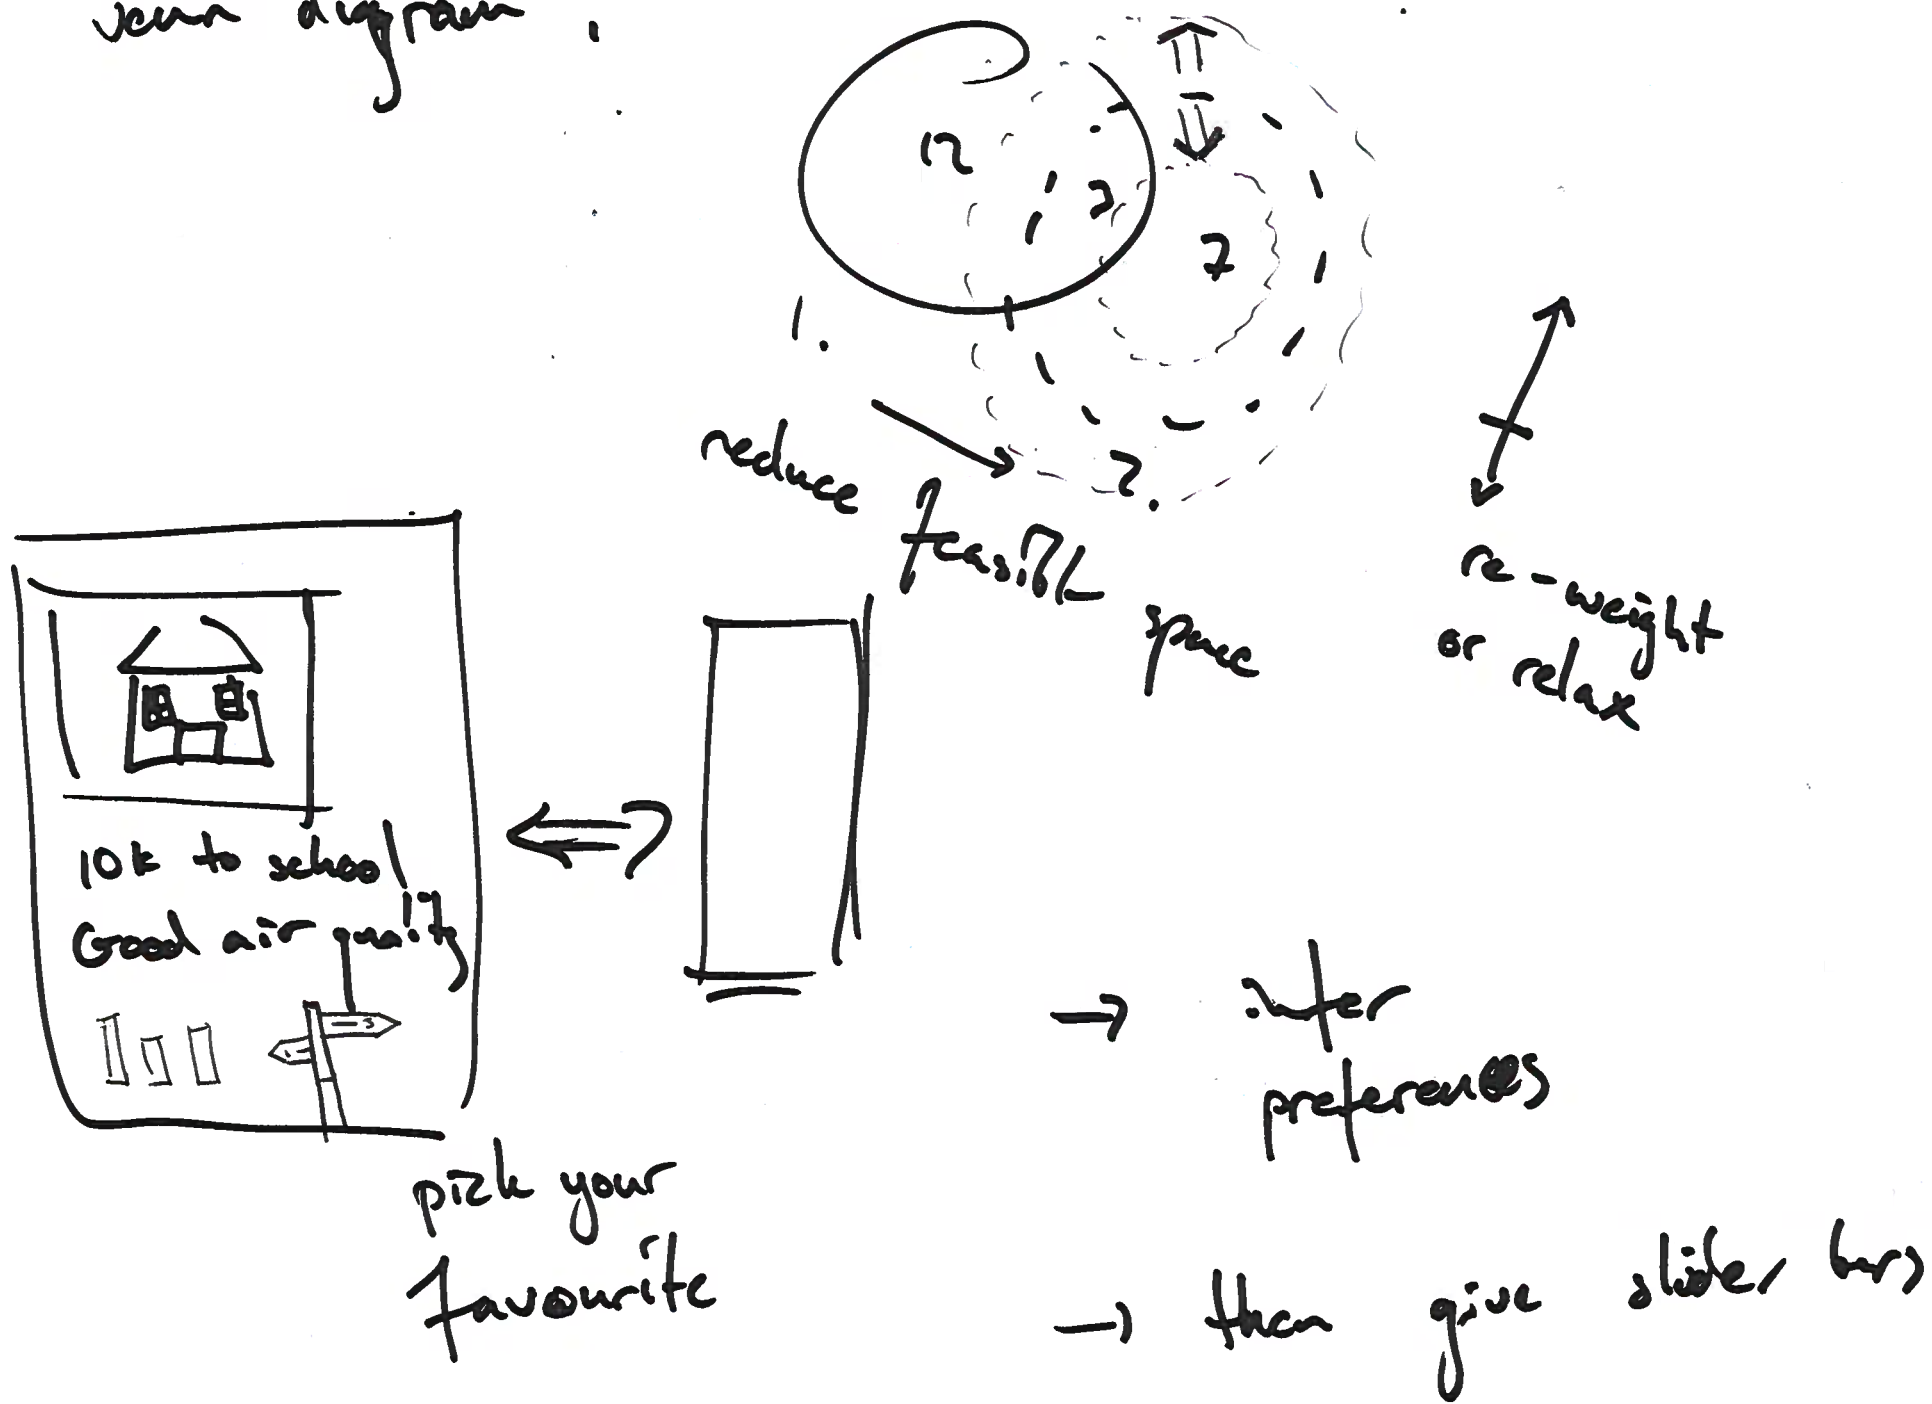 venn diagram
12
2
7
1.
2.
reduce feasible space
re-weight
or relax
10k to school
Good air quality
pick your
favourite
→ infer
preferences
→ then give slider bars